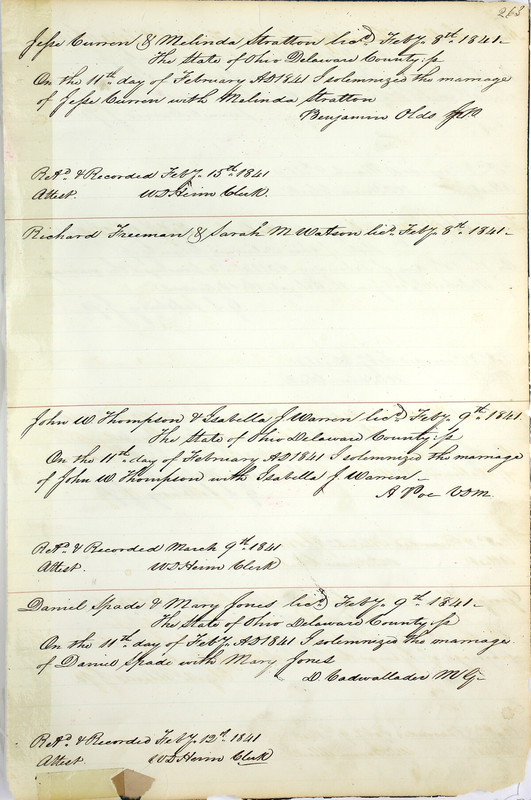 268
Jesse Curren & Melinda Stratton licd. Feby. 8th. 1841 –
The State of Ohio Delaware County ss
On the 11th. day of February AD 1841 I solemnized the marriage
of Jesse Curren with Melinda Stratton
Benjamin Olds
Retd. & Recorded Feby. 15th. 1841
Attest. W D Heim Clerk.
Richard Freeman & Sarah M Watson licd. Feby. 8th. 1841 –
John W Thompson & Isabella J Warren licd. Feby. 9th. 1841.
The State of Ohio Delaware County ss
On the 11th. day of February AD 1841 I solemnized the marriage
of John W. Thompson with Isabella J. Warren –
A Poe VDM.
Retd. & Recorded March 9th. 1841
Attest. W D Heim Clerk
Daniel Spade & Mary Jones licd. Feby. 9th. 1841 –
The State of Ohio Delaware County ss
On the 11th. day of Feby. AD 1841 I solemnized the marriage
of Daniel Spade with Mary Jones
D. Cadwallader M G –
Retd. & Recorded Feby. 12th. 1841
Attest. W D Heim Clerk